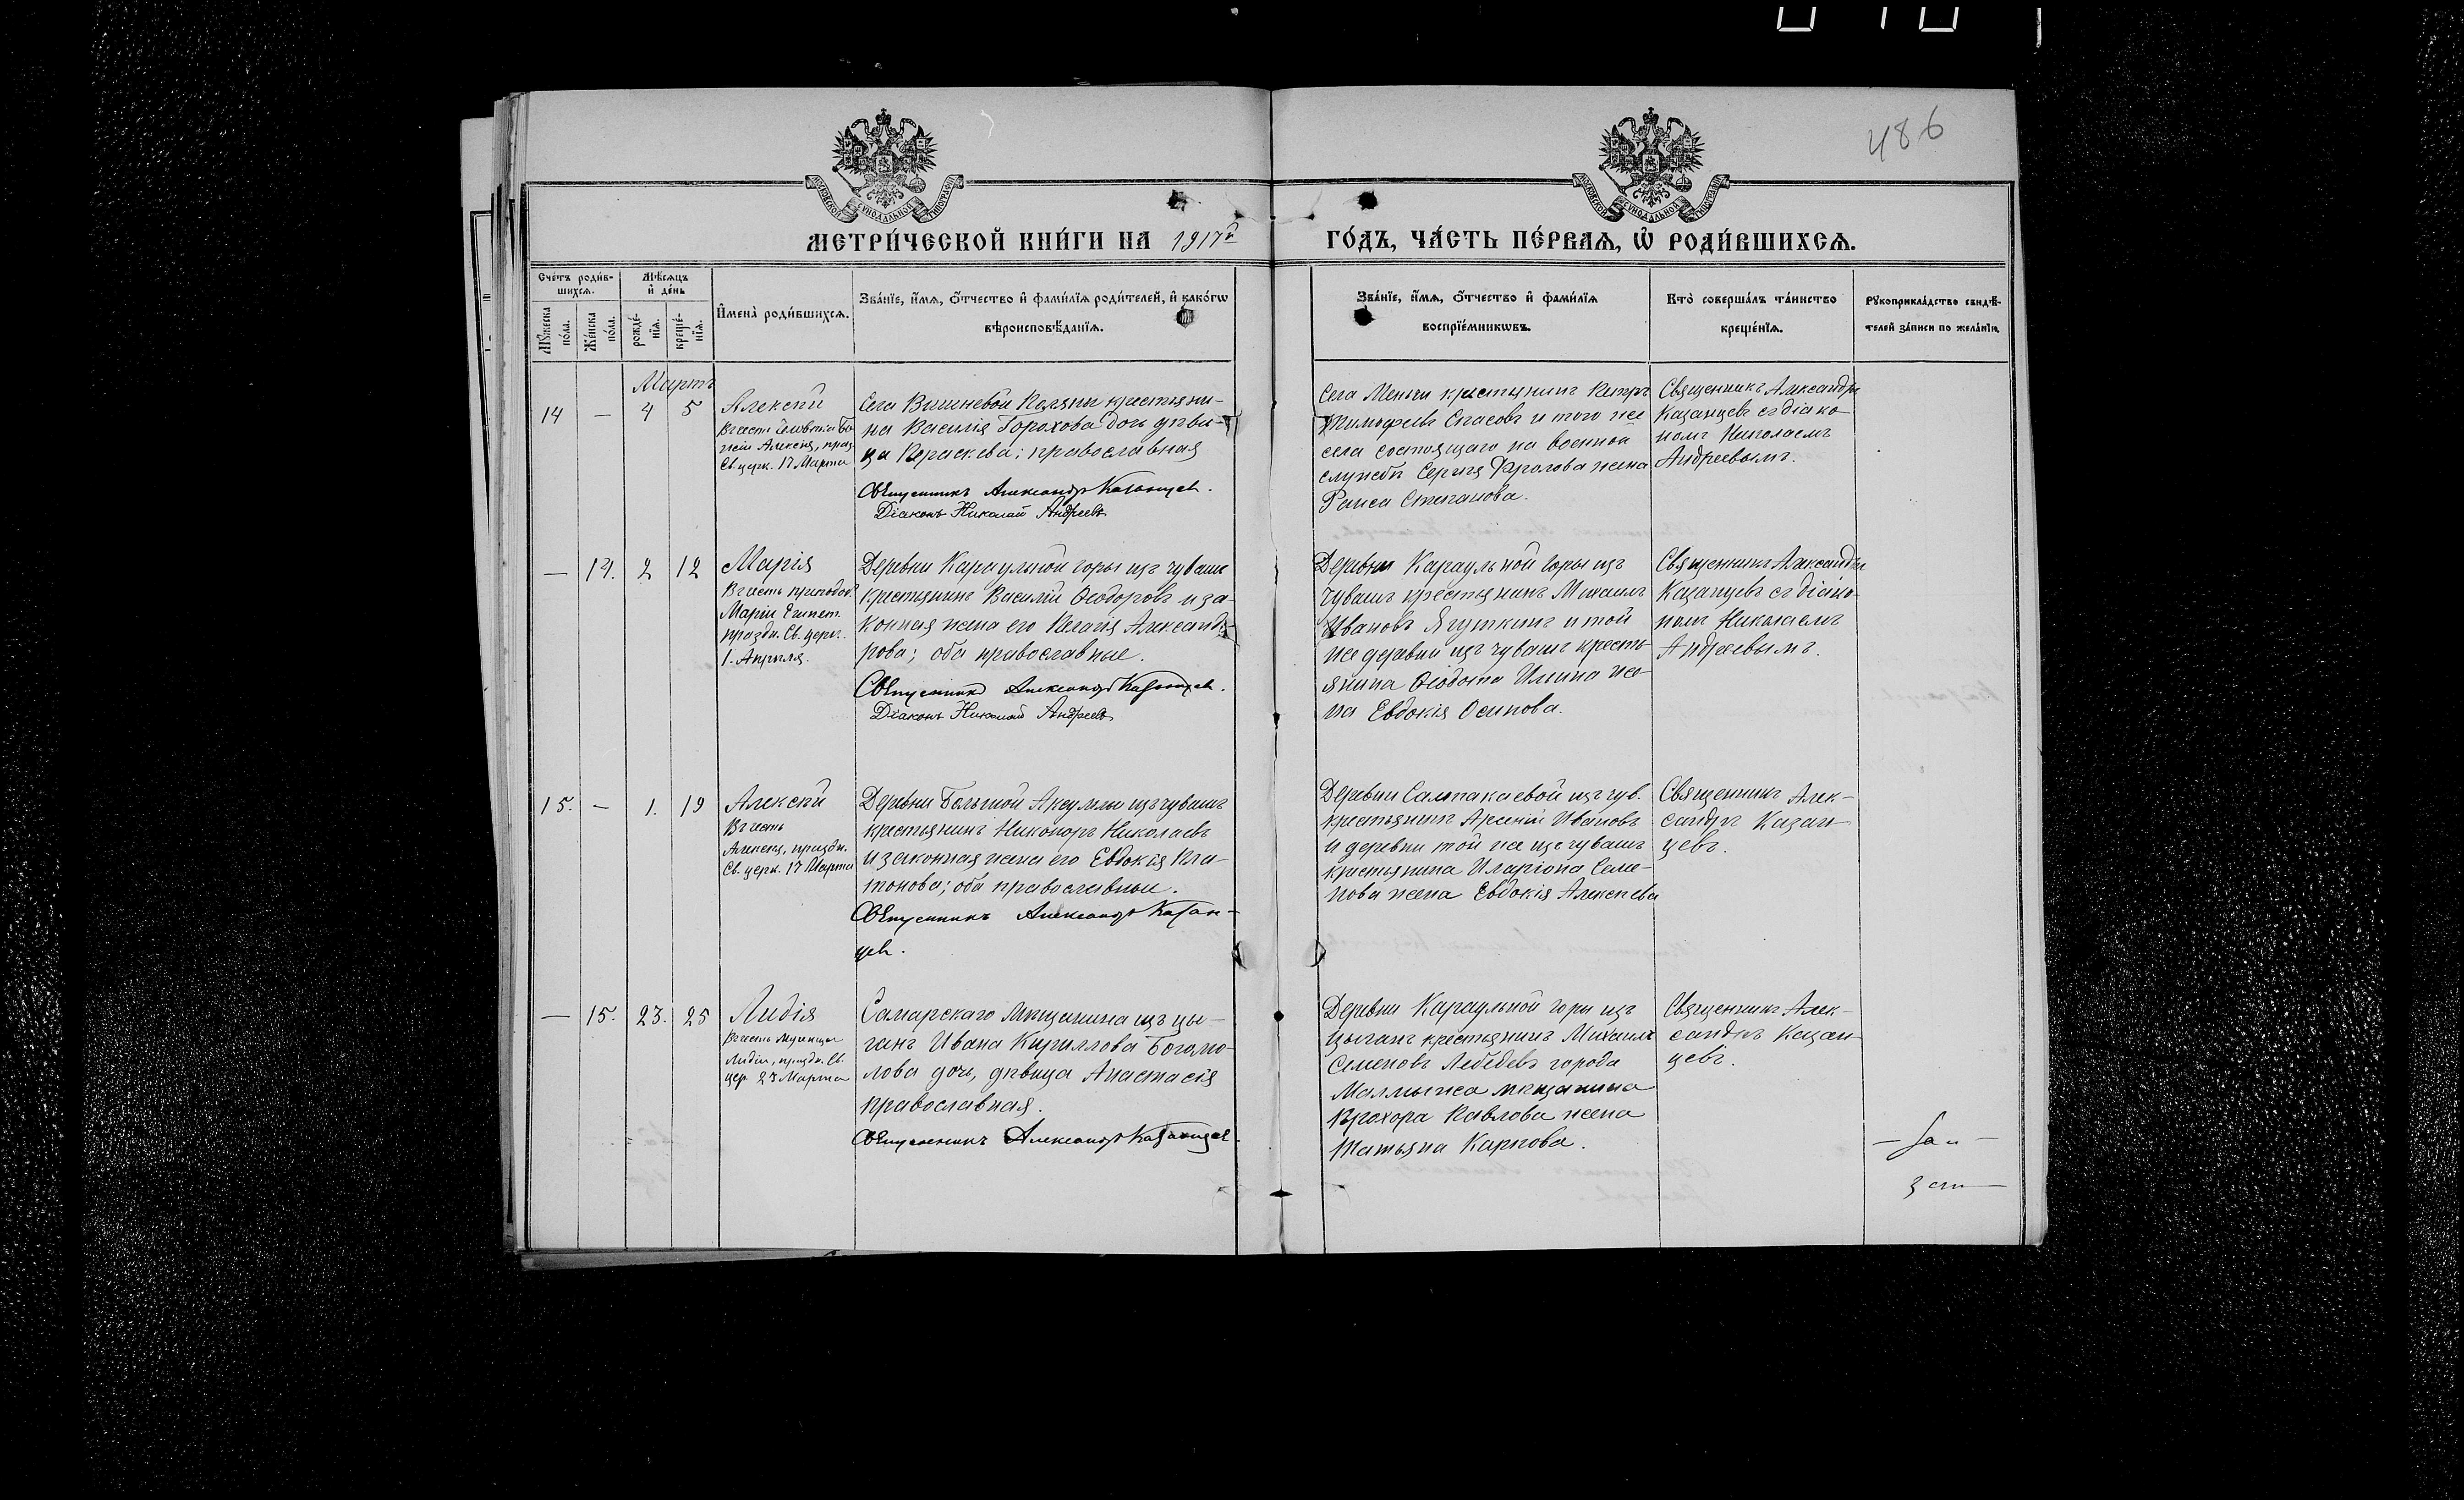 486
МОСКОВСКОЙ СѴНОДАЛЬНОЙ ТИПОГРАФІИ
МОСКОВСКОЙ СѴНОДАЛЬНОЙ ТИПОГРАФІИ
МЕТРИ́ЧЕСКОЙ КНИ́ГИ НА 1917й ГО́ДЪ, ЧА́СТЬ ПЕ́РВАѦ, Ѡ҆ РОДИ́ВШИХСѦ.
Сче́тъ роди́в-
шихсѧ.
Мꙋ́жеска по́ла.
Же́нска по́ла.
Мѣ́сѧцъ и҆ де́нь
рожде́-
нїѧ.
креще́-
нїѧ.
И҆мена̀ роди́вшихсѧ.
Зва́нїе, и҆́мѧ, ѻ҆́тчество и҆ фами́лїѧ роди́телей, и҆ како́гѡ
вѣроисповѣ́данїѧ.
Зва́нїе, и҆́мѧ, ѻ҆́тчество и҆ фами́лїѧ
воспрїе́мникѡвъ.
Кто̀ соверша́лъ та́инство
креще́нїѧ.
Рꙋкоприкла́дство свидѣ́-
телей за́писи по жела́нїю.
Мартъ
14 — 4 5
Алексѣй
Въ честь Человѣка Бо-
жія Алексія, празд.
Св. церк. 17 Марта
Села Вишневой Поляны крестьяни-
на Василія Горохова дочь дѣви-
ца Параскева; православная
Священникъ Александръ Казанцев.
Діаконъ Николай Андреевъ
Села Меньчи крестьянинъ Петръ
Тимофеевъ Спасовъ и того же
села состоящаго на военной
службѣ Сергѣя Фролова жена
Раиса Степанова.
Священникъ Александръ
Казанцевъ съ діако-
номъ Николаемъ
Андреевымъ.
— 14. 2 12
Марія
Въ честь преподоб.
Маріи Египет.
праздн. Св. церк.
1. Апрѣля.
Деревни Караульной горы изъ чувашъ
крестьянинъ Василій Ѳеодоровъ и за-
конная жена его Пелагія Александ-
рова; оба православные.
Священникъ Александръ Казанцев.
Діаконъ Николай Андреевъ
Деревни Караульной горы изъ
чувашъ крестьянинъ Михаилъ
Ивановъ Ягуткинъ и той
же деревни изъ чувашъ кресть-
янина Ѳеодота Ильина же-
на Евдокія Осипова.
Священникъ Александръ
Казанцевъ съ діако-
номъ Николаемъ
Андреевымъ.
15. — 1. 19
Алексѣй
Въ честь
Алексія, праздн.
Св. церк. 17 Марта
Деревни Большой Аксумлы изъ чувашъ
крестьянинъ Никоноръ Николаевъ
и законная жена его Евдокія Пла-
тонова; оба православные.
Священникъ Александръ Казан-
цев.
Деревни Салтакаевой изъ чув.
крестьянинъ Арсеній Ивановъ
и деревни той же изъ чувашъ
крестьянина Иларіона Семе-
нова жена Евдокія Алексѣева
Священникъ Алек-
сандръ Казан-
цевъ.
— 15. 23. 25
Лидія
Въ честь мученицы
Лидіи, праздн. Св.
цер. 23 Марта
Самарскаго мѣщанина изъ цы-
ганъ Ивана Кириллова Богомо-
лова дочь, дѣвица Анастасія
православная.
Священникъ Александръ Казанцев.
Деревни Караульной горы изъ
цыганъ крестьянинъ Михаилъ
Семеновъ Лебедевъ города
Малмыжа мѣщанина
Прохора Павлова жена
Татьяна Карпова.
Священникъ Алек-
сандръ Казан-
цевъ.